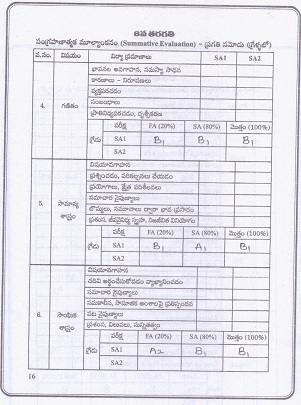 6వ తరగతి
సంగ్రహణాత్మక మూల్యాంకనం (Summative Evaluation) – ప్రగతి నమోదు (గ్రేళ్ళలో)
వ.సం. విషయం విద్యా ప్రమాణాలు SA1 SA2
4. గణితం
భావనల అవగాహన, సమస్యా సాధన
కారణాలు - నిరూపణలు
వ్యక్తపరచడం
సంబంధాలు
ప్రాతినిధ్యపరచడం, దృశ్యీకరణ
గ్రేడు పరీక్ష FA (20%) SA (80%) మొత్తం (100%)
SA1 B1 B1 B1
SA2
5. సామాన్య శాస్త్రం
విషయావగాహన
ప్రశ్నించడం, పరికల్పనలు చేయడం
ప్రయోగాలు, క్షేత్ర పరిశీలనలు
సమాచార నైపుణ్యాలు
బొమ్మలు, నమూనాలు ద్వారా భావ ప్రసారం
ప్రశంస, జీవవైవిధ్య స్పృహ, నిజజీవిత వినియోగం
గ్రేడు పరీక్ష FA (20%) SA (80%) మొత్తం (100%)
SA1 B1 A1 B1
SA2
6. సాంఘిక శాస్త్రం
విషయావగాహన
చదివి అర్థంచేసుకోవడం వ్యాఖ్యానించడం
సమాచార నైపుణ్యాలు
సమకాలీన, సామాజిక అంశాలపై ప్రతిస్పందన
పట నైపుణ్యాలు
ప్రశంస, విలువలు, సున్నితత్వం
గ్రేడు పరీక్ష FA (20%) SA (80%) మొత్తం (100%)
SA1 A2 B1 B1
SA2
16